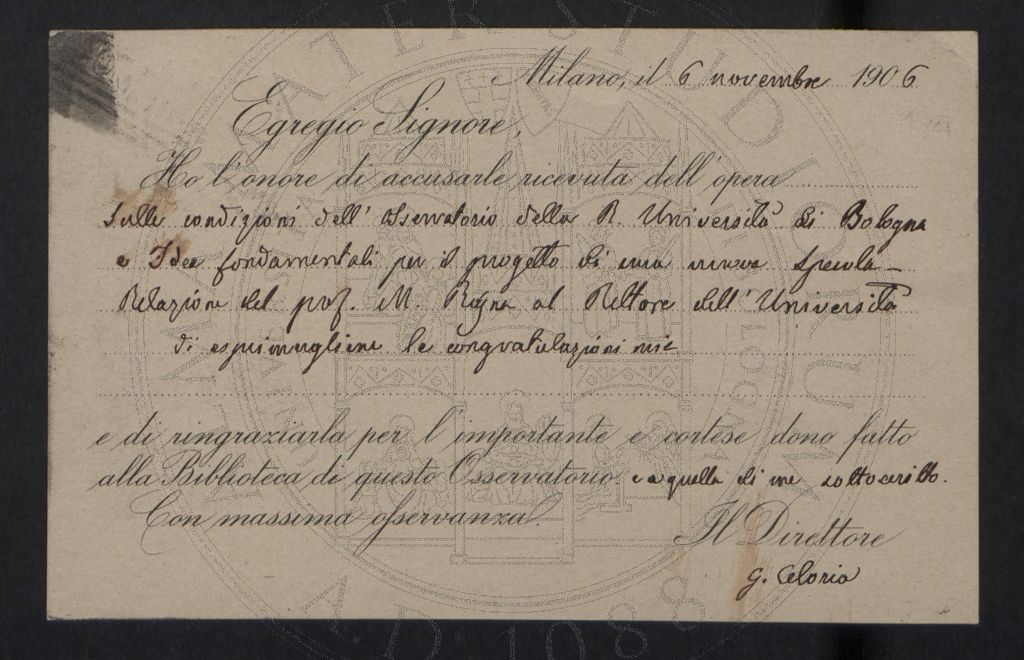 Milano, il 6 novembre 1906
Egregio Signore,
Ho l'onore di accusarle ricevuta dell'opera
Sulle condizioni dell'osservatorio della R. Università di Bologna
e Idee fondamentali per il progetto di una nuova Specola –
Relazione del prof. M. Rajna al Rettore dell'Università
di esprimergliene le congratulazioni mie
e di ringraziarla per l'importante e cortese dono fatto
alla Biblioteca di questo Osservatorio e a quella di me sottoscritto.
Con massima osservanza.
Il Direttore
G. Celoria
ALMA MATER STUDIORUM
A.D. 1088